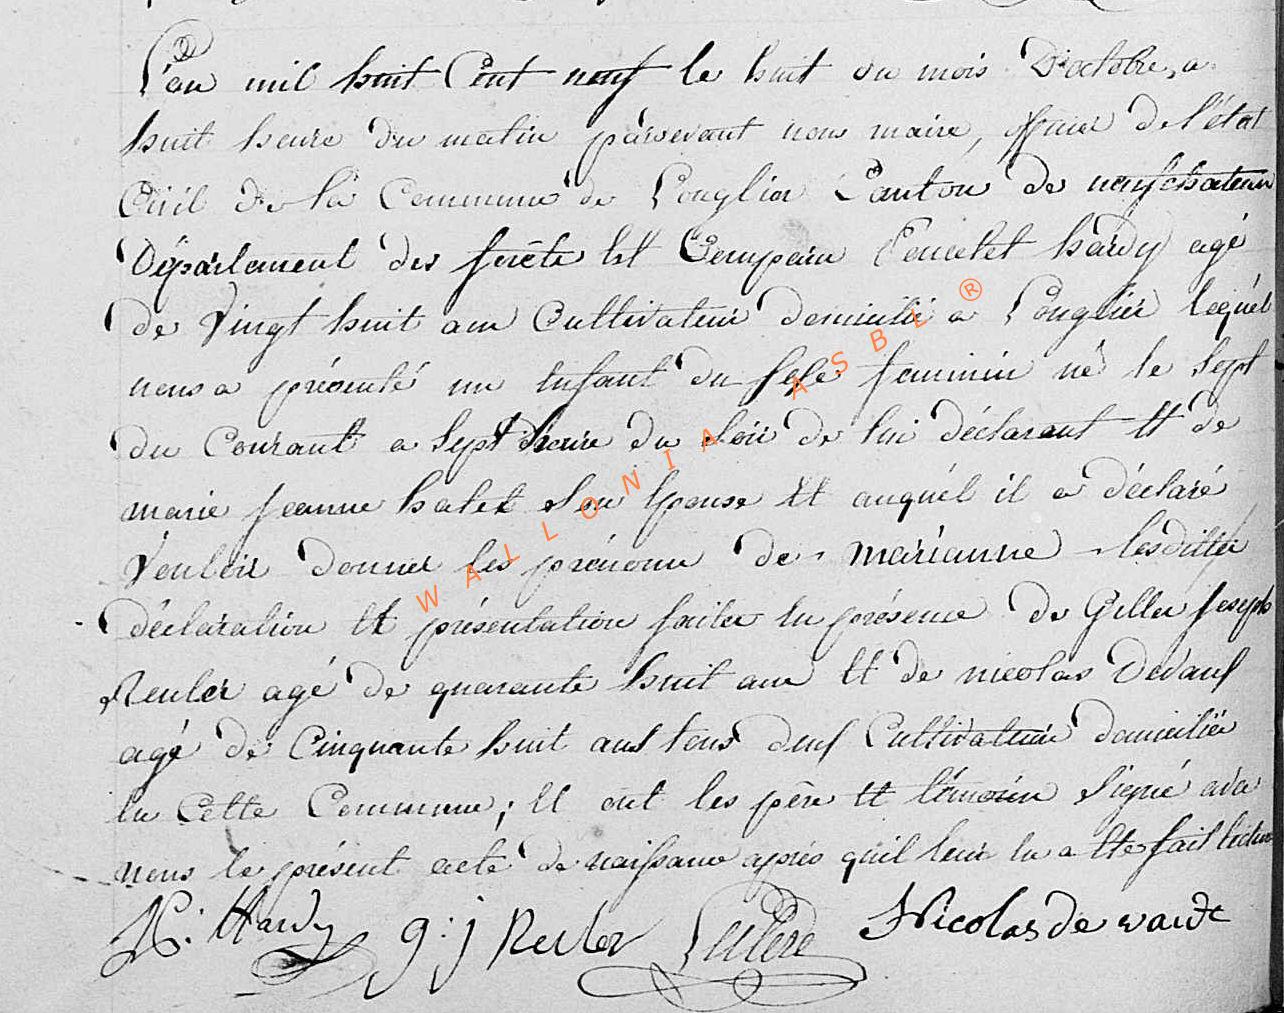 L'an mil huit Cent neuf le huit du mois D'octobre, a
huit heure du matin pardevant nous maire, officier de l'état
Civil de la Commune de Longlier Canton de neufchateau
Département des forêts est Comparu Poncelet hardy agé
de Vingt huit ans Cultivateur domicilié a Longlier lequel
nous a présenté un enfant du sexe feminin né le sept
du Courant a sept heure du soir de lui déclarant et de
marie jeanne halet son épouse et auquél il a déclaré
Vouloir donner les prénoms de marianne lesdittes
déclaration et présentation faites en présence de Gilles joseph
Reuler agé de quarante huit ans et de nicolas Devaux
agé de Cinquante huit ans tous deux Cultivateurs domiciliés
en Cette Commune; et ont les père et témoins signé avec
nous le présent acte de naissance après quil leur en a été fait lecture
Hardy g: j Reuler Nicolas de vaux
WALLONIA ASBL ®